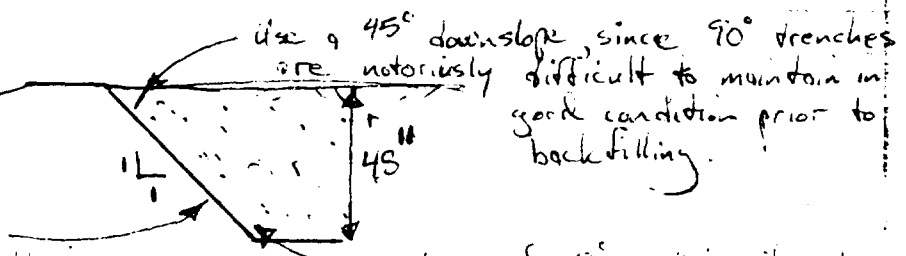 Use a 45° downslope, since 90° trenches
are notoriusly difficult to maintain in
good condition prior to
backfilling.
1
1
45"